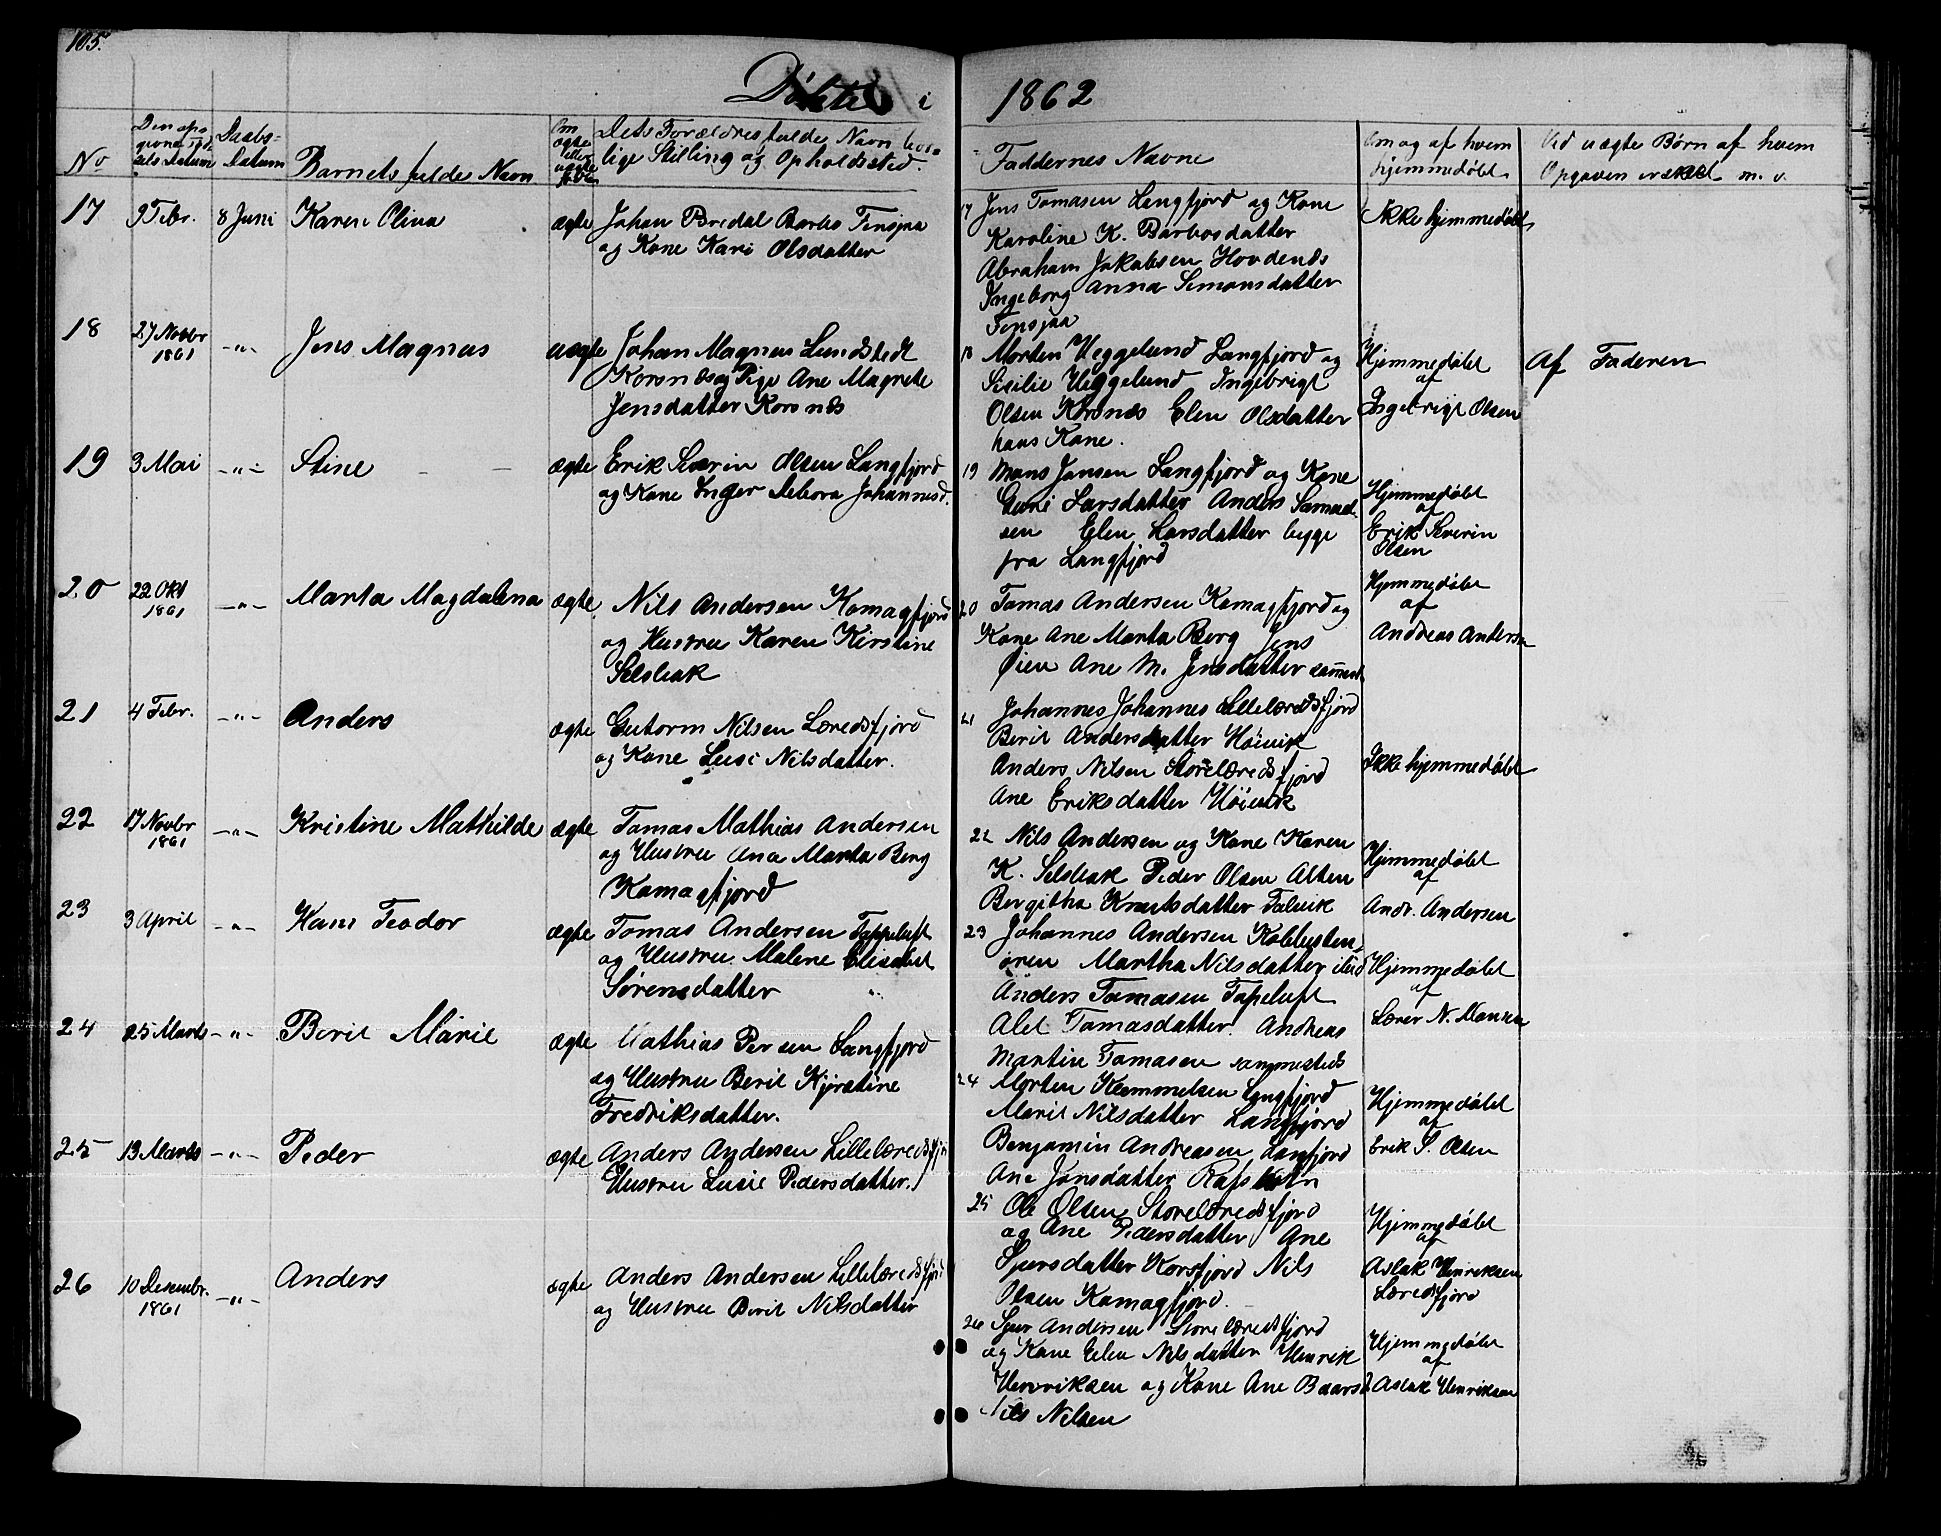 105.
Døbte i 1862
No
Den opgivne Fødsels Datum
Daabs-Datum
Barnets fulde Navn
Om ægte eller uægte født
Dets Forældres fulde Navn borgerlige Stilling og Opholdssted.
Faddernes Navne
Om og af hvem hjemmedøbt
Ved uægte Børn af hvem Opgaven er skeet m. v.
17 9 Febr. 8 Juni Karen Olina ægte Johan Bredal Barbo Finsjaa
og Kone Kari Olsdatter
17 Jens Tomasen Langfjord og Kone
Karoline K. Barbosdatter
Abraham Jakobsen Hovdenes
Ingeborg Anna Simonsdatter
Finsjaa
Ikke hjemmedøbt
18 27 Novbr 1861 -"- Jens Magnus uægte Johan Magnus Lundstedt
Korsnæs og Pige Ane Magrete
Jensdatter Korsnæs
18 Morten Ueggelund Langfjord og
Sisilie Ueggelund Ingebrigt
Olsen Korsnæs Elen Olsdatter
hans Kone.
Hjemmedøbt
af
Ingebrigt Olsen
Af Faderen
19 3 Mai -"- Stine ægte Erik Severin Olsen Langfjord
og Kone Inger Debora Johannesd.
19 Mons Jonsen Langfjord og Kone
Guni Larsdatter Anders Samuel
sen Elen Larsdatter begge
fra Langfjord
Hjemmedøbt
af
Erik Severin
Olsen
20 22 Okt 1861 -"- Marta Magdalena ægte Nils Andersen Komagfjord
og Hustru Karen Kirstine
Selsbak
20 Tomas Andersen Komagfjord og
Kone Ane Marta Berg Jens
Øien Ane M. Jensdatter sammest
Hjemmedøbt
af
Andreas Andersn
21 4 Febr. -"- Anders ægte Gutorm Nilsen Læredsfjord
og Kone Lusi Nilsdatter.
21 Johannes Johannes Lillelæredsfjord
Beril Andersdatter Høivik
Anders Nilsen Storelæredsfjord
Ane Eriksdatter Høivik
Ikke hjemmedøbt
22 17 Novbr 1861 -"- Kristine Mathilde ægte Tomas Mathias Andersen
og Hustru Ana Marta Berg
Komagfjord
22 Nils Andersen og Kone Karen
K. Selsbak Peder Olsen Alten
Bergitha Knutsdatter Talvik
Hjemmedøbt
af
Andr. Andersen
23 3 April -"- Hans Teodor ægte Tomas Andersen Tappeluft
og Hustru Malene Elisabet
Sørensdatter
23 Johannes Andersen Kobbusten
øren Martha Nilsdatter ibid
Anders Tomasen Tapeluft
Alet Tomasdatter. Andreas
Martin Tomasen sammesteds
Hjemmedøbt
af
Lærer N. Monsen
24 25 Marts -"- Beril Marie ægte Mathias Persen Langfjord
og Hustru Beril Kjerstine
Fredriksdatter.
24 Morten Klemmetsen Langfjord
Maril Nilsdatter Langfjord
Benjamin Andreasen Langfjord
Ane Jonsdatter Rafsbotn
Hjemmedøbt
af
Erik S. Olsen
25 13 Marts -"- Peder ægte Anders Andersen Lillelæredsfjor
Hustru Lusie Pedersdatter.
25 Ole Olsen Storelæredsfjord
og Ane Pedersdatter Ane
Sjursdatter Korsfjord Nils
Olsen Komagfjord.
Hjemmedøbt
af
Aslak Henriksen
Læredsfjord
26 10 Desembr. 1861 -"- Anders ægte Anders Andersen Lillelæredsfjord
og Hustru Beril Nilsdatter
26 Sjur Andersen Storelæredsfjord
og Kone Elen Nilsdatter Henrik
Henriksen og Kone Ane Baarsd
Nils Nilsen
Hjemmedøbt
af
Aslak Henriksen